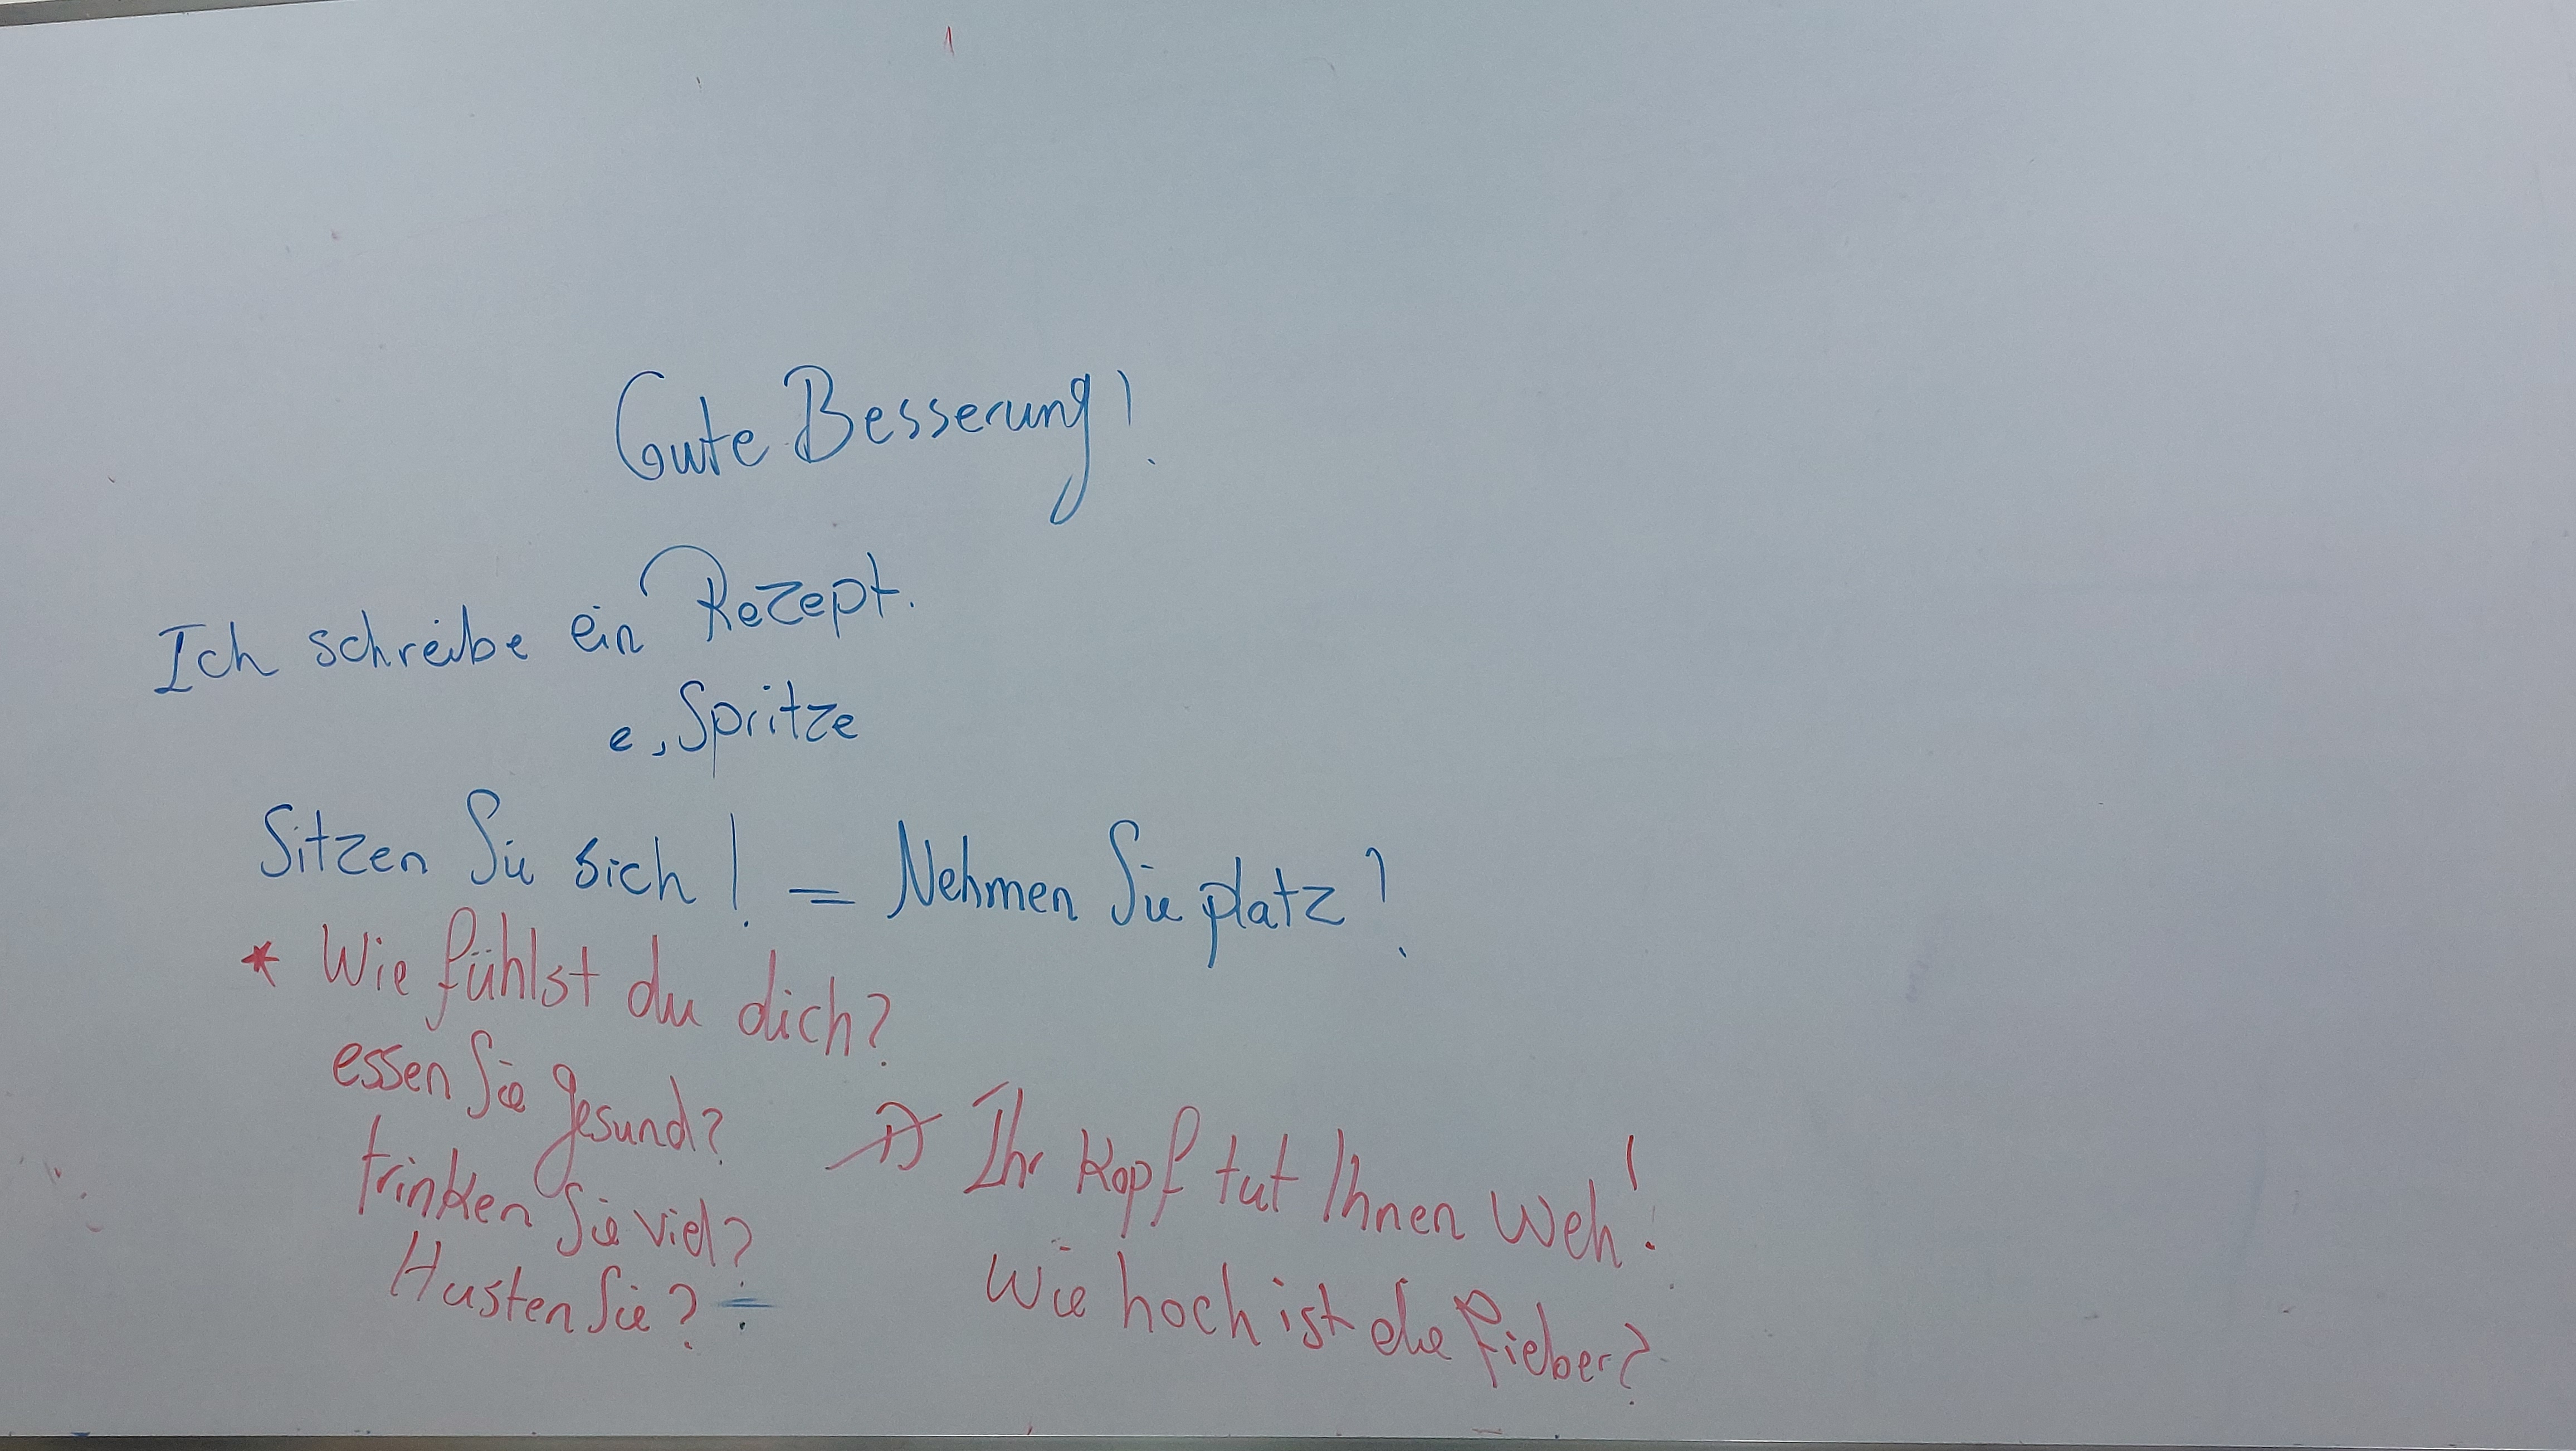 Gute Besserung!
Ich schreibe ein Rezept.
e, Spritze
Sitzen Sie sich! = Nehmen Sie platz!
* Wie fühlst du dich?
essen Sie gesund?
trinken Sie viel?
Husten Sie?
Ihr Kopf tut Ihnen Weh!
Wie hoch ist die Fieber?